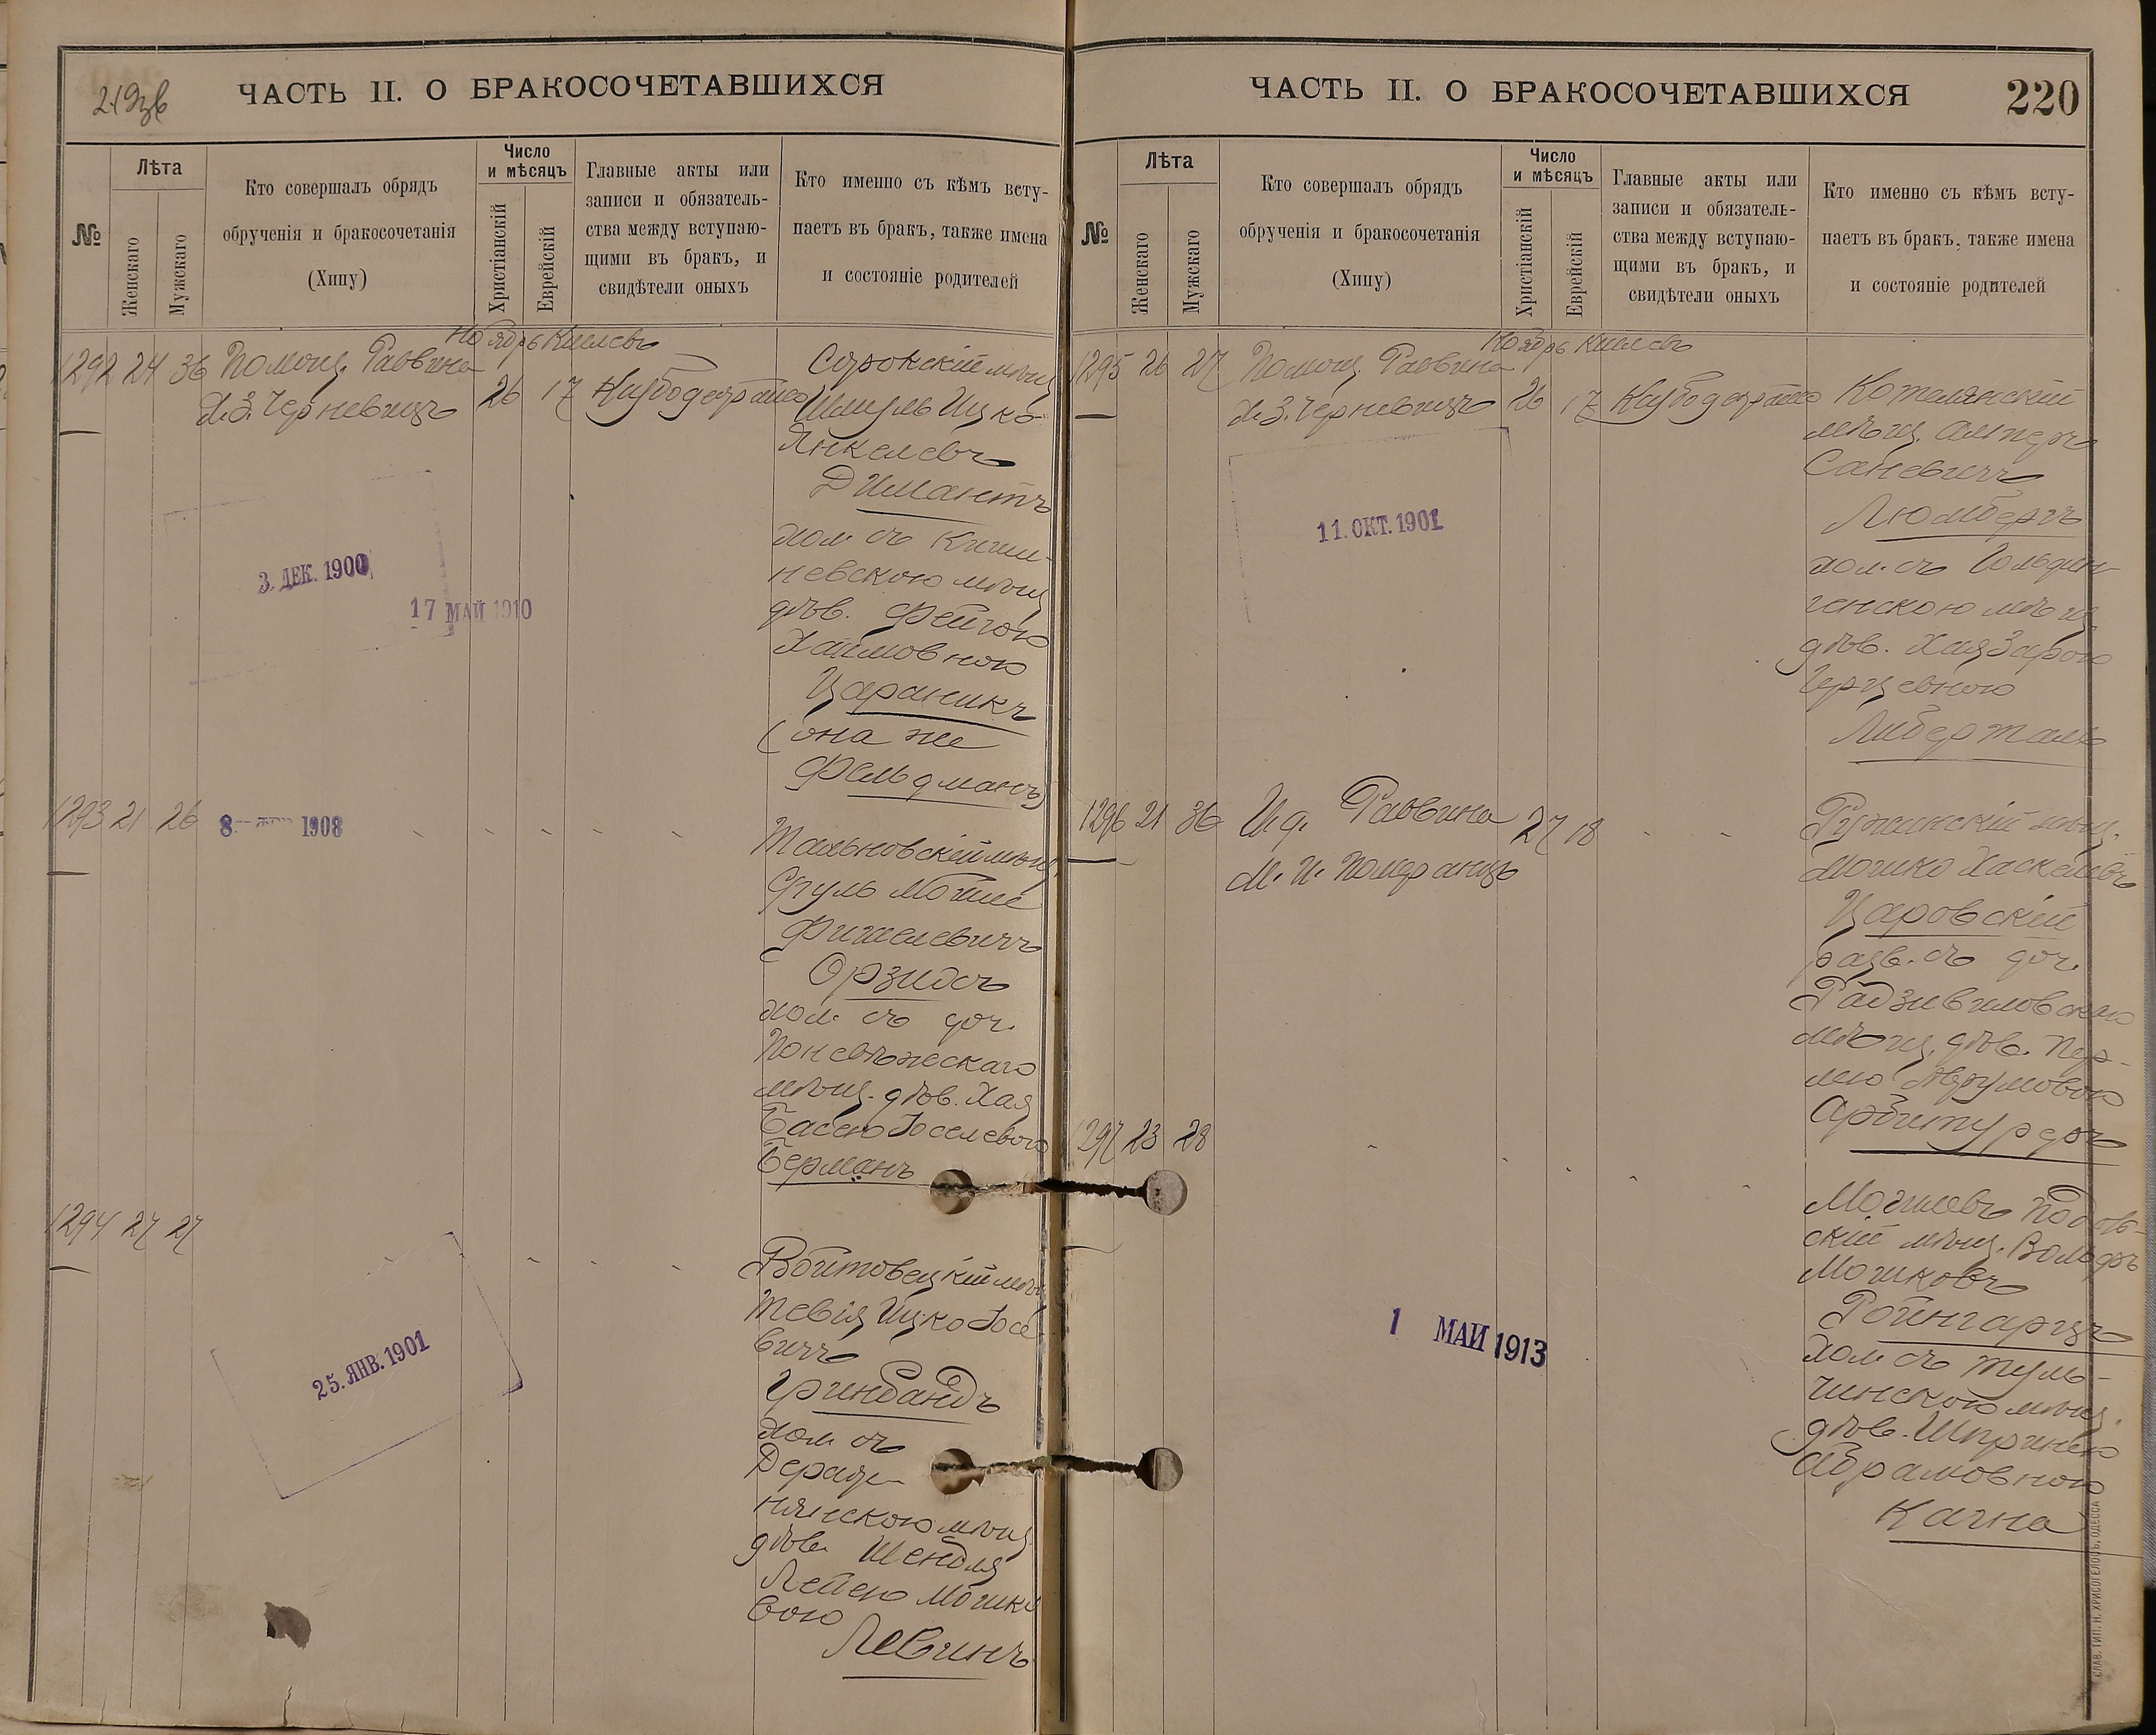 219зв
ЧАСТЬ II. О БРАКОСОЧЕТАВШИХСЯ
№
Лѣта
Женскаго
Мужскаго
Кто совершалъ обрядъ
обрученія и бракосочетанія
(Хипу)
Число
и мѣсяцъ
Христіанскій
Еврейскій
Главные акты или
записи и обязатель-
ства между вступаю-
щими въ бракъ, и
свидѣтели оныхъ
Кто именно съ кѣмъ всту-
паетъ въ бракъ, также имена
и состояніе родителей
Ноябрь Кислевъ
1292 24 36 Помощ. Раввина
Х.З. Черневицъ
26 17
Сорокскій мѣщ
Шмуль Ицко-
Янкелевъ
Димантъ
хол. съ Киши-
невскою мѣщ
дѣв. Фейгою
Хаимовною
Цараникъ
(она же
Фельдманъ)
3. ДЕК. 1900
17 МАЙ 1910
1293 21 26
8 1908
Тальновскій мѣщ.
Сруль Мойше
Фишелевичъ
Орзидъ
хол. съ доч.
Поневѣжескаго
мѣщ. дѣв. Хая
Басею Іоселевою
Берманъ
1294 27 27
25. ЯНВ. 1901
Войтовецкій мѣщ
Тевія Ицко Іосе-
вичъ
Гринбандъ
хол. съ
Дераж-
нянскою мѣщ.
дѣв. Шендля
Лейею Мошко
вою
Левинъ
ЧАСТЬ II. О БРАКОСОЧЕТАВШИХСЯ
220
№
Лѣта
Женскаго
Мужскаго
Кто совершалъ обрядъ
обрученія и бракосочетанія
(Хипу)
Число
и мѣсяцъ
Христіанскій
Еврейскій
Главные акты или
записи и обязатель-
ства между вступаю-
щими въ бракъ, и
свидѣтели оныхъ
Кто именно съ кѣмъ всту-
паетъ въ бракъ, также имена
и состояніе родителей
Ноябрь Кислевъ
1295 26 27 Помощ. Раввина
Х.З. Черневицъ
26 17
Котелянский
мѣщ. Алтеръ
Саневичъ
Люмбергъ
хол. съ Гольдин-
генскою мѣщ
дѣв. Хая Зарою
Герцевною
Либерталь
11. ОКТ. 1901
1296 21 36 И.д. Раввина 27 18
М. И. Померанцъ
Ружинскій мѣщ.
Мошко Хаскелевъ
Царовскій
разв. съ доч.
Радзивиловскаго
мѣщ. дѣв. Пер-
лею Аврумовою
Арбитуреръ
1297 23 28
1 МАЙ 1913
Могилевъ Подоль-
скій мѣщ. Вольфъ
Мошковъ
Ройнгарцъ
хол. съ Туль-
чинскою мѣщ.
дѣв. Шпринею
Абрамовною
Качка
СЛАВ. ТИП. Н. ХРИСОГЕЛОСЪ, ОДЕССА